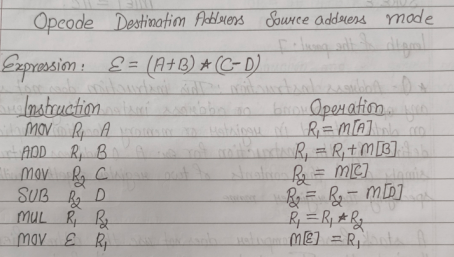 Opcode Destination Address Source address mode
Expression: E = (A+B) * (C-D)
Instruction Operation
MOV R₁ A R₁ = M[A]
ADD R₁ B R₁ = R₁ + M[B]
MOV R₂ C R₂ = M[C]
SUB R₂ D R₂ = R₂ - M[D]
MUL R₁ R₂ R₁ = R₁ * R₂
MOV E R₁ M[E] = R₁